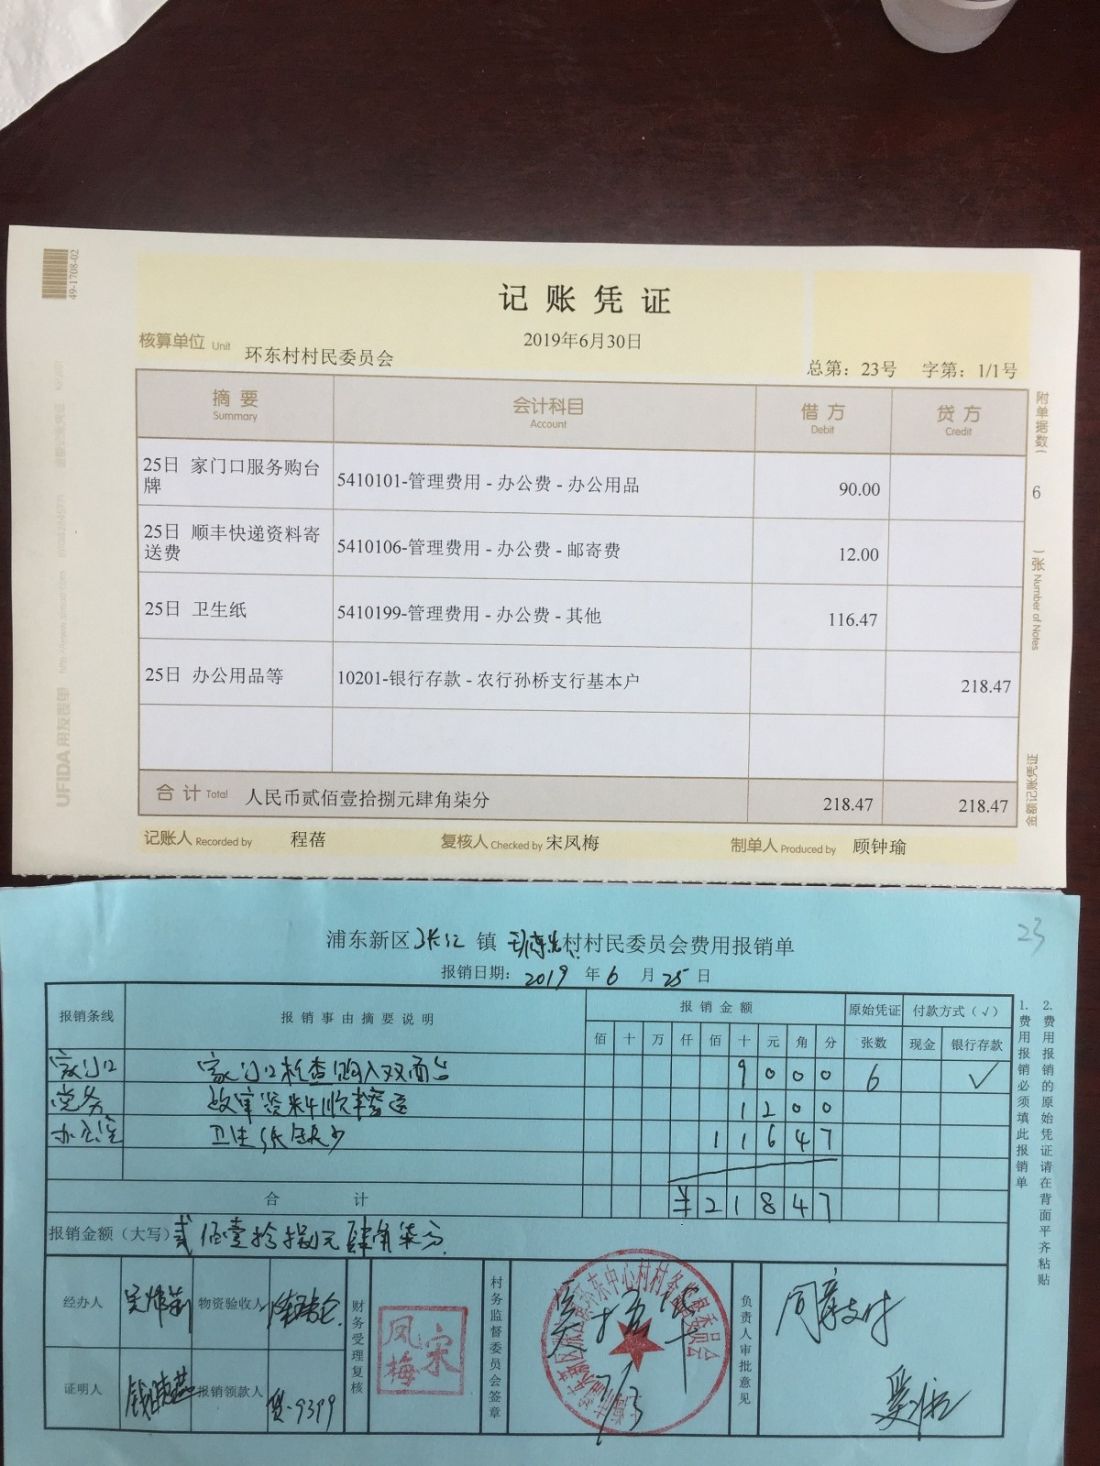 49-1708-02
记账凭证
2019年6月30日
核算单位 Unit 环东村村民委员会
总第：23号 字第：1/1号
摘要 会计科目 借方 贷方
Summary Account Debit Credit
25日 家门口服务购台牌 5410101-管理费用 - 办公费 - 办公用品 90.00
25日 顺丰快递资料寄送费 5410106-管理费用 - 办公费 - 邮寄费 12.00
25日 卫生纸 5410199-管理费用 - 办公费 - 其他 116.47
25日 办公用品等 10201-银行存款 - 农行孙桥支行基本户 218.47
合计 Total 人民币贰佰壹拾捌元肆角柒分 218.47 218.47
记账人 Recorded by 程蓓 复核人 Checked by 宋凤梅 制单人 Produced by 顾钟瑜
附单据数（ 6 张） Number of Notes
金额记账凭证
UFIDA 用友表单
23
浦东新区张江镇 村村民委员会费用报销单
报销日期：2019年6月25日
报销条线 报销事由摘要说明 报销金额 原始凭证张数 付款方式（√）
佰 十 万 仟 佰 十 元 角 分 现金 银行存款
家门口 家门口检查购入双面台 9 0 0 0 6 √
党务 资料顺丰 1 2 0 0
办公室 卫生纸 1 1 6 4 7
合计 ¥ 2 1 8 4 7
报销金额（大写） 贰佰壹拾捌元肆角柒分
经办人 物资验收人 财务受理复核 宋凤梅 村务监督委员会签章 负责人审批意见 同意支付
证明人 报销领款人 9399
7/3
1. 费用报销必须填此报销单
2. 费用报销的原始凭证请在背面平齐粘贴